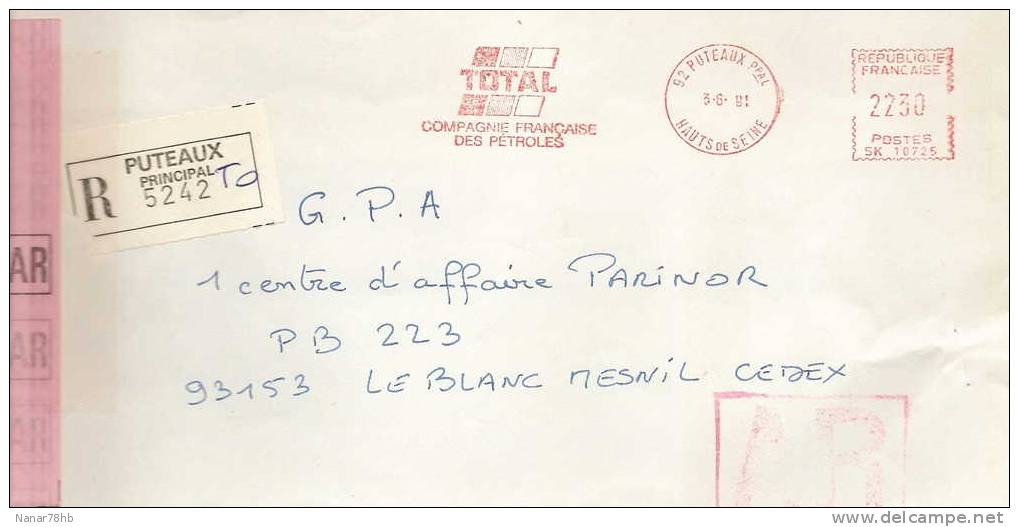 TOTAL
COMPAGNIE FRANÇAISE
DES PÉTROLES
92 PUTEAUX PPAL
3-6- 81
HAUTS DE SEINE
REPUBLIQUE
FRANCAISE
2230
POSTES
SK 10725
R
PUTEAUX
PRINCIPAL
5242 TO
G.P.A
1 centre d'affaire PARINOR
PB 223
93153 LE BLANC MESNIL CEDEX
AR
AR
AR
AR
Nanar78hb
©DELCAMPE.NET